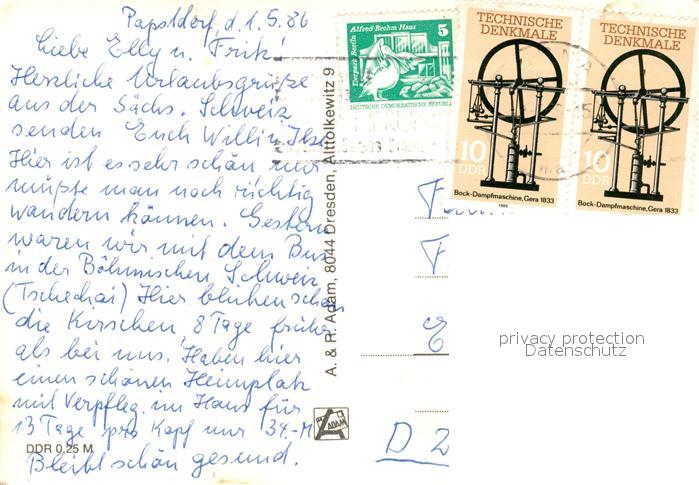 Papstdorf, d. 1.5.86
Liebe Elly u. Fritz!
Herzliche Urlaubsgrüße
aus der Sächs. Schweiz
senden Euch Willi u. Ilse
Hier ist es sehr schön nur
müßte man noch richtig
wandern können. Gestern
waren wir mit dem Bus
in der Böhmischen Schweiz
(Tschechai) Hier blühen schon
die Kirschen, 8 Tage früher
als bei uns. Haben hier
einen schönen Heimplatz
mit Verpfleg. im Haus für
13 Tage pro Kopf nur 34.-M
Bleibt schön gesund.
DDR 0,25 M
A. & R. Adam, 8044 Dresden, Alttolkewitz 9
ADAM
Alfred Brehm Haus
5
Tierpark Berlin
DEUTSCHE DEMOKRATISCHE REPUBLIK
TECHNISCHE
DENKMALE
10
DDR
Bock-Dampfmaschine, Gera 1833
1985
TECHNISCHE
DENKMALE
10
DDR
Bock-Dampfmaschine, Gera 1833
F
F
E
D 2
privacy protection
Datenschutz